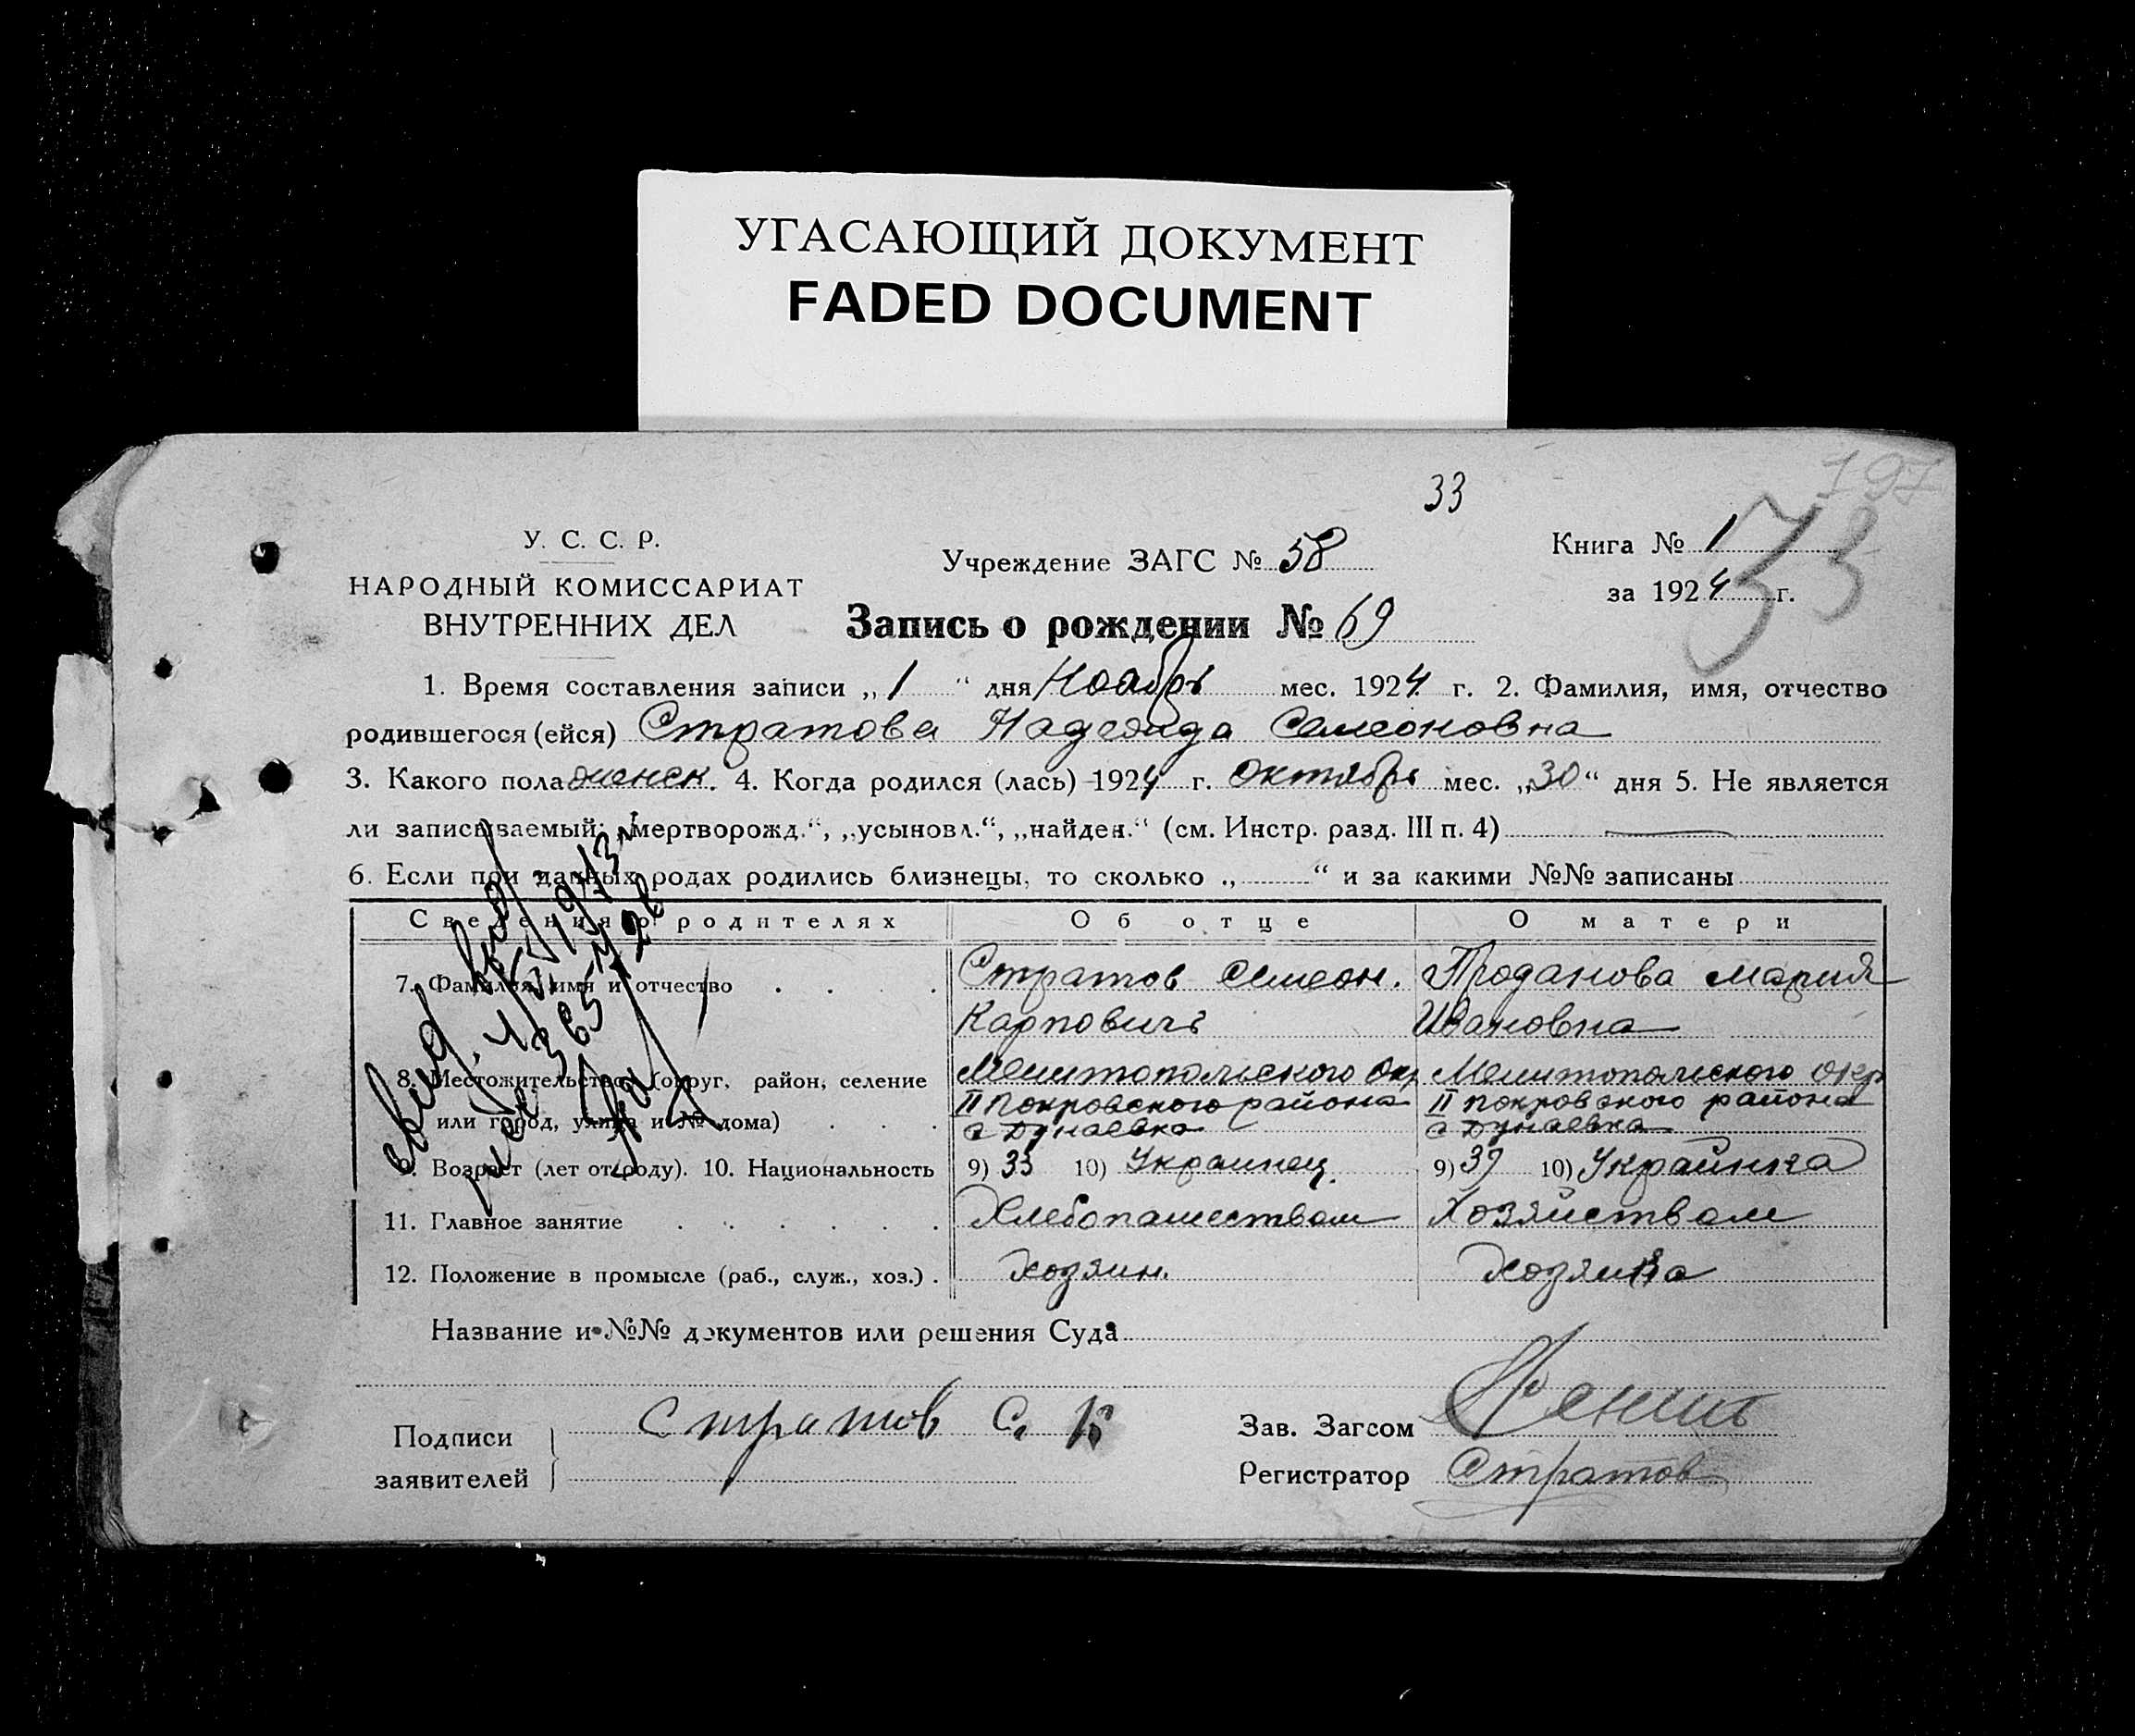 УГАСАЮЩИЙ ДОКУМЕНТ
FADED DOCUMENT
197
33
33
У. С. С. Р.
НАРОДНЫЙ КОМИССАРИАТ
ВНУТРЕННИХ ДЕЛ
Учреждение ЗАГС № 58
Книга № 1
за 1924 г.
Запись о рождении № 69
1. Время составления записи „1“ дня Ноябрь мес. 1924 г. 2. Фамилия, имя, отчество
родившегося (ейся) Стратова Надежда Семеоновна
3. Какого пола женск. 4. Когда родился (лась) 1924 г. Октябрь мес. „30“ дня 5. Не является
ли записываемый: „мертворожд.“, „усыновл.“, „найден.“ (см. Инстр. разд. III п. 4)
6. Если при данных родах родились близнецы, то сколько „ “ и за какими №№ записаны
Сведения о родителях Об отце О матери
7. Фамилия, имя и отчество . . . . Стратов Семеон. Проданова Мария
Карповичь Ивановна
8. Местожительство (округ, район, селение Мелитопольского Окр Мелитопольского Окр
II Покровского района II Покровского района
или город, улица и № дома) . . . с Дунаевка с Дунаевка
9. Возраст (лет от роду). 10. Национальность 9) 33 10) Украинец. 9) 39 10) Украинка
11. Главное занятие . . . . . . Хлебопашеством Хозяйством
12. Положение в промысле (раб., служ., хоз.) . хозяин. хозяйка
Название и №№ документов или решения Суда
Подписи
заявителей
Стратов С. К
Зав. Загсом
Регистратор Стратов